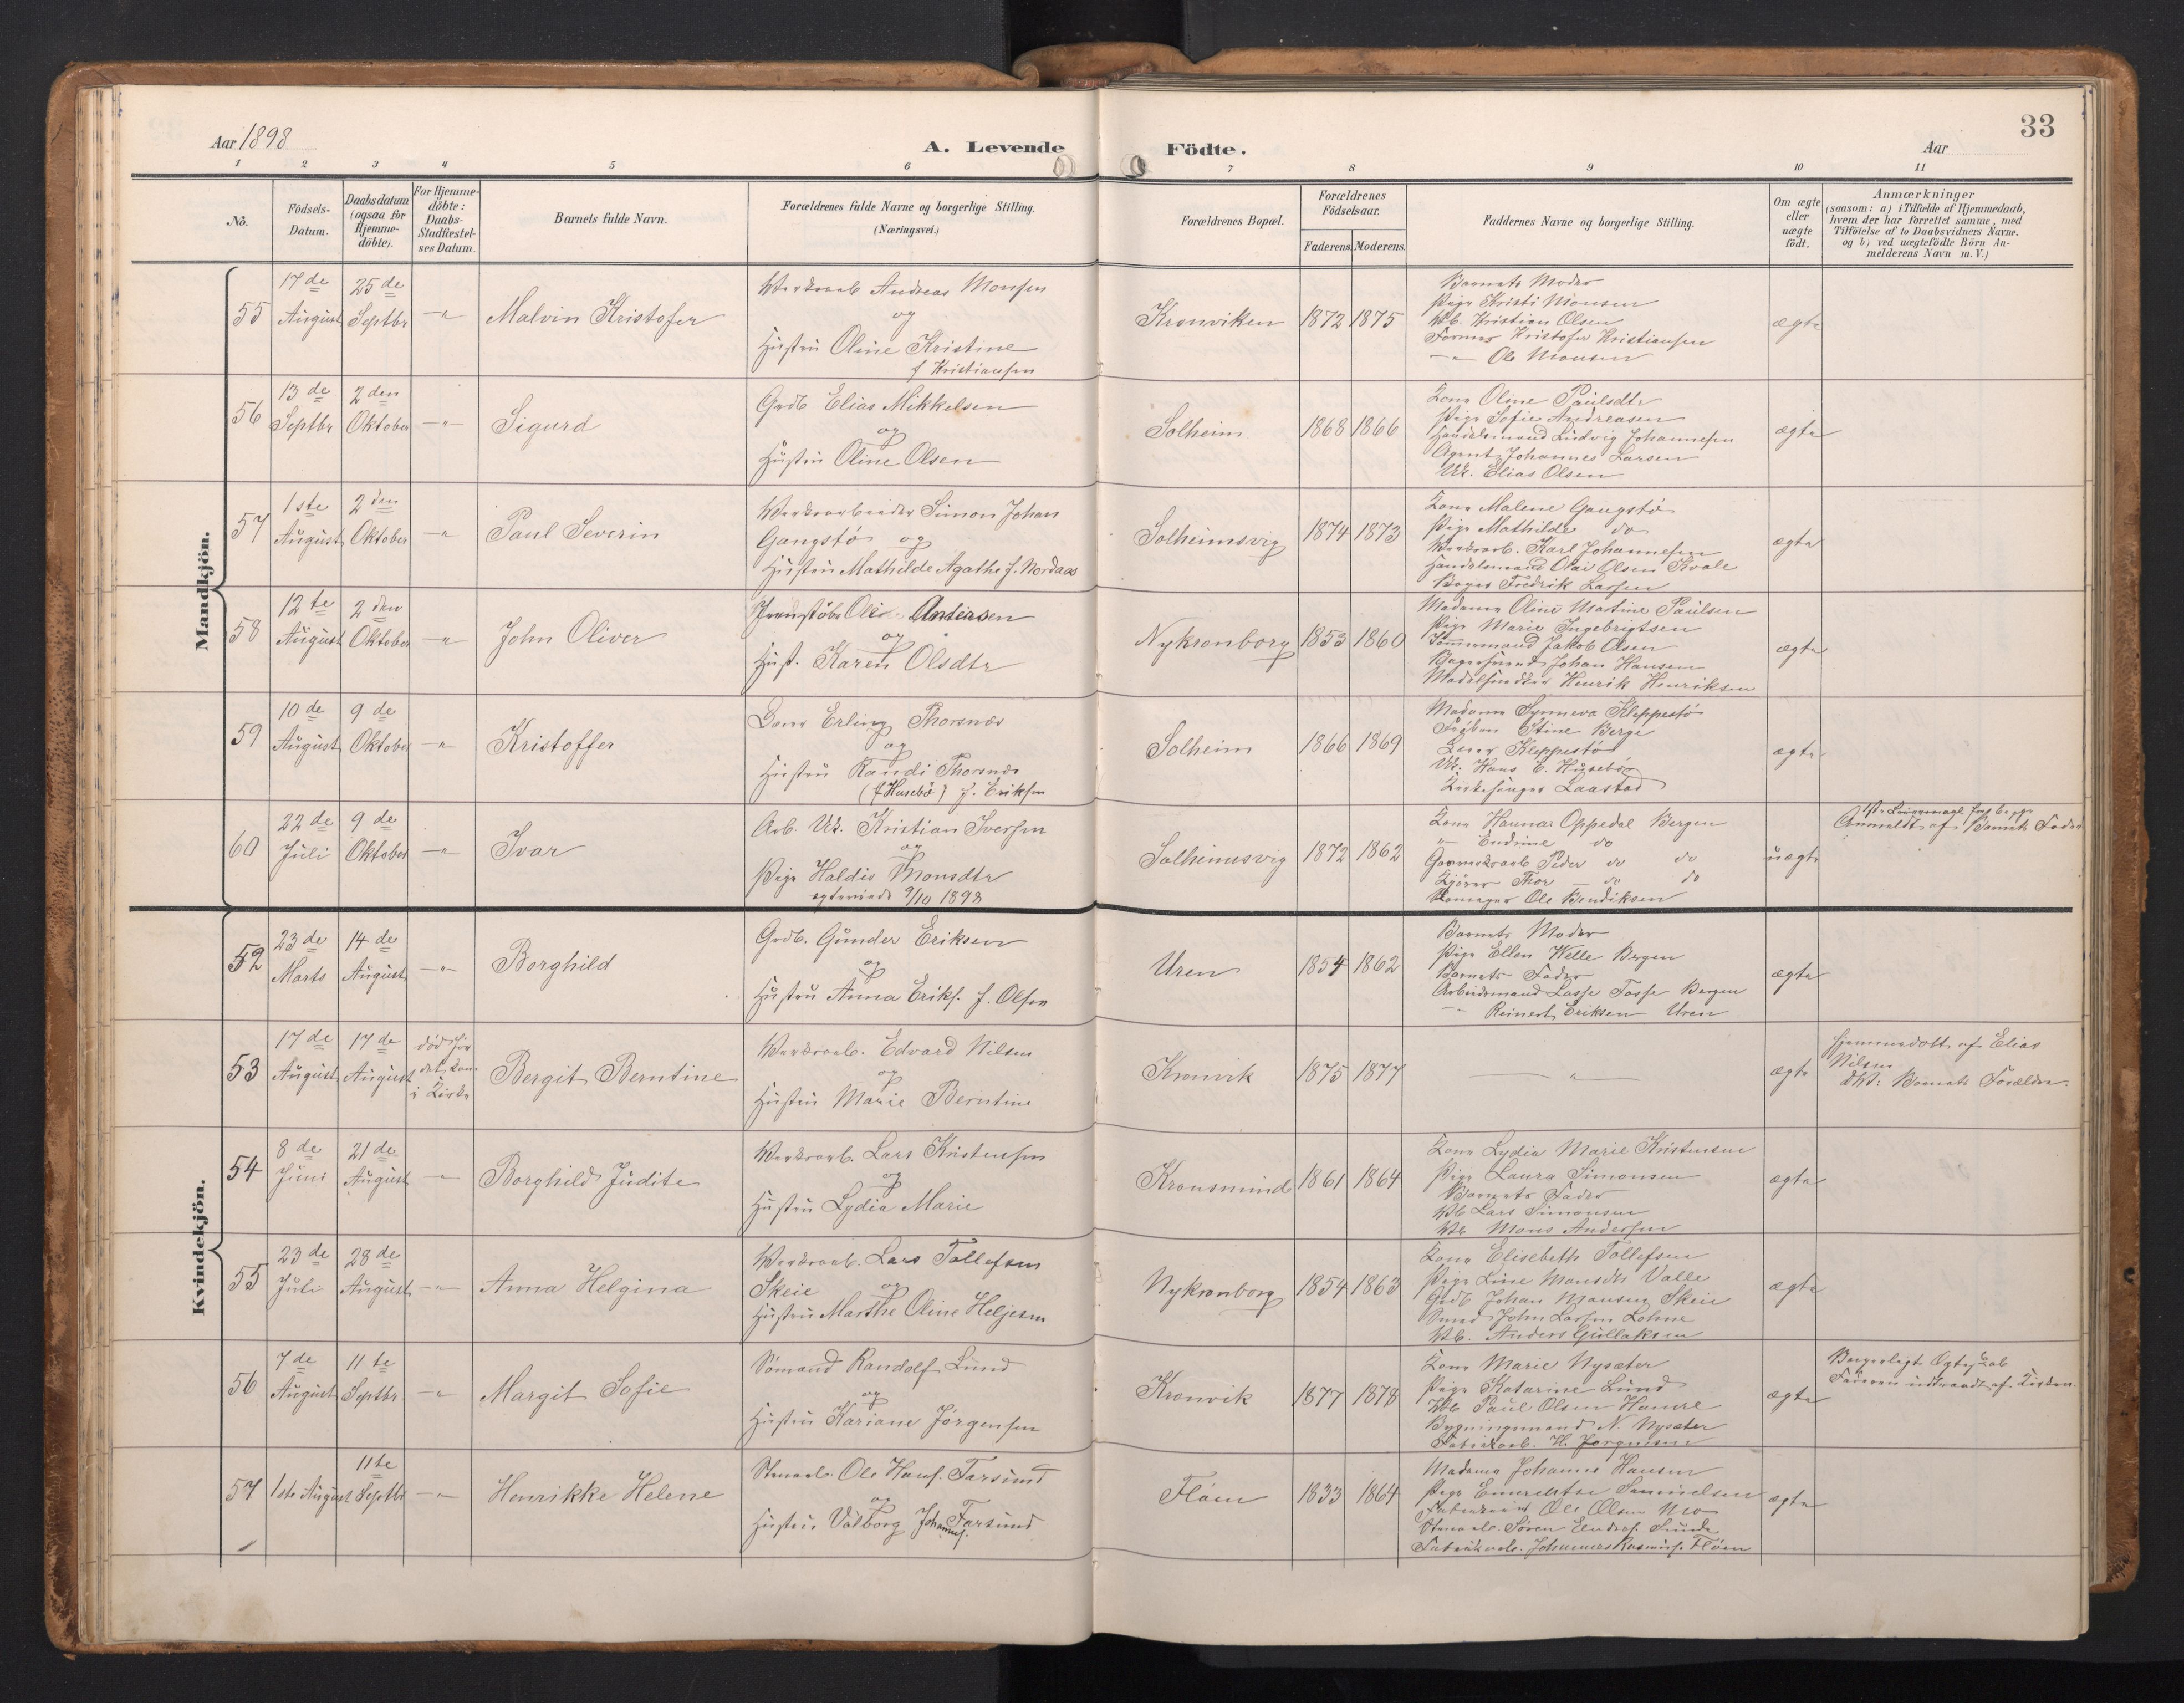 33
Aar 1898
A. Levende Födte.
Aar
1 2 3 4 5 6 7 8 9 10 11
No.
Födsels-Datum.
Daabsdatum (ogsaa for Hjemme-döbte).
For Hjemme-döbte: Daabs-Stadfæstel-ses Datum.
Barnets fulde Navn.
Forældrenes fulde Navne og borgerlige Stilling.
(Næringsvei.)
Forældrenes Bopæl.
Forældrenes Födselsaar.
Faderens. Moderens.
Faddernes Navne og borgerlige Stilling.
Om ægte eller uægte födt.
Anmærkninger
(saasom: a) i Tilfælde af Hjemmedaab,
hvem der har forrettet samme, med
Tilföielse af to Daabsvidners Navne.
og b) ved uægtefödte Börn An-
melderens Navn m. V.)
Mandkjön.
55 17de August 25de Septbr -"- Malvin Kristofer
Andreas Monsen
og
Hustru Oline Kristine
f Kristiansen
Kronviken 1872 1875
Barnets Moder
Pige Kristi Monsen
Kristian Olsen
Former Kristofer Kristiansen
-"- Ole Monsen
ægte
56 13de Septbr 2den Oktober -"- Sigurd
Grdb Elias Mikkelsen
og
Hustru Oline Olsen
Solheim 1868 1866
Kone Oline Paulsdtr
Pige Sofie Andreasen
Handelsmand Ludvig Johannesen
Agent Johannes Larsen
Uk. Elias Olsen
ægte
57 1ste August 2den Oktober -"- Paul Severin
Værksarbeider Simon Johan
Gangstø og
Hustru Mathilde Agathe f. Nordaas
Solheimsvig 1874 1873
Kone Malene Gangstø
Pige Mathilde do
Værksarb. Karl Johannesen
Handelsmand Olai Olsen Kvale
Bager Fredrik Larsen
ægte
58 12te August 2den Oktober -"- John Oliver
Jernstøber Ole Andersen
og
Hust. Karen Olsdtr
Nykronborg 1853 1860
Madame Oline Martine Paulsen
Pige Marie Ingebrigtsen
Tømmermand Jakob Olsen
Bagersvend Johan Hansen
Modelsnedker Henrik Henriksen
ægte
59 10de August 9de Oktober -"- Kristoffer
Erling Thorsnæs
og
Hustru Randi Thorsnæs
(f Husebø) f. Eriksen
Solheim 1866 1869
Madame Synneva Kleppestø
Frøken Stine Berge
Kleppestø
Uk. Hans E. Husebø
Kirkesanger Laastad
ægte
60 22de Juli 9de Oktober -"- Ivar
Arb. Uk. Kristian Iversen
og
Pige Haldis Monsdtr
ægteviede 9/10 1898
Solheimsvig 1872 1862
Kone Hanna Oppedal Bergen
-"- Endrine do
Peder do do
Kjører Thor do do
Ole Bendiksen
uægte
Anmeldt af Barnets Fader
Kvindekjön.
52 23de Marts 14de August -"- Borghild
Grdb. Gunder Eriksen
og
Hustru Anna Eriks. f. Olsen
Uren 1854 1862
Barnets Moder
Pige Ellen Welle Bergen
Barnets Fader
Arbeidsmand Lasse Fosse Bergen
-"- Reinert Eriksen Uren
ægte
53 17de August 17de August død før det kom i Kirke Bergit Berntine
Værksarb. Edvard Nilsen
og
Hustru Marie Berntine
Kronvik 1875 1877
-"-
ægte
Hjemmedøbt af Elias
Nilsen
Barnets Forældre.
54 8de Juni 21de August -"- Borghild Judite
Værksarb. Lars Kristensen
og
Hustru Lydia Marie
Kronsminde 1861 1864
Kone Lydia Marie Kristensen
Pige Laura Simonsen
Barnets Fader
Vb Lars Simonsen
Vb Mons Andersen
ægte
55 23de Juli 28de August -"- Anna Helgina
Værksarb. Lars Tollefsen
Skeie og
Hustru Marthe Oline Heljesen
Nykronborg 1854 1863
Kone Elisebeth Tollefsen
Pige Line Monsdtr Valle
Grdb Johan Monsen Skeie
Smed John Larsen Lohne
Vb. Anders Gullaksen
ægte
56 7de August 11te Septbr -"- Margit Sofie
Sømand Randolf Lund
og
Hustru Kariane Jørgensen
Kronvik 1877 1878
Kone Marie Nysæter
Pige Katarine Lund
Vb Paul Olsen Hamre
Bygningsmand N. Nysæter
Fabrikarb. H. Jørgensen
ægte
Borgerligt Ægteskab
Faderen udtraadt af Kirken.
57 1ste August 11te Septbr -"- Henrikke Helene
Stenarb. Ole Hans. Farsund
og
Hustru Valborg Johannes. Farsund
Fløen 1833 1864
Madame Johanne Hansen
Pige Samuelsen
Ole Olsen Mo
Stenarb. Søren Enders. Sunde
Fabrikarb. Johannes Rasmus. Fløen
ægte